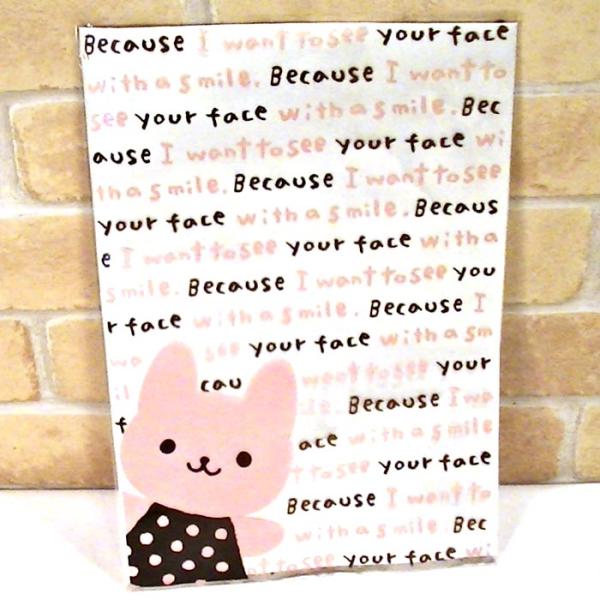 Because I want to see your face
with a smile. Because I want to
see your face with a smile. Bec
ause I want to see your face wi
th a smile. Because I want to see
your face with a smile. Becaus
e I want to see your face with a
smile. Because I want to see you
r face with a smile. Because I
wa see your face with a sm
il cau want to see your
f le. Because I wa
ace with a smile
t to see your face
Because I want to
with a smile. Bec
t to see your face wi